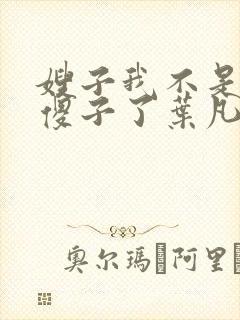 嫂子我不是
傻子了葉凡
奥尔瑪 阿里